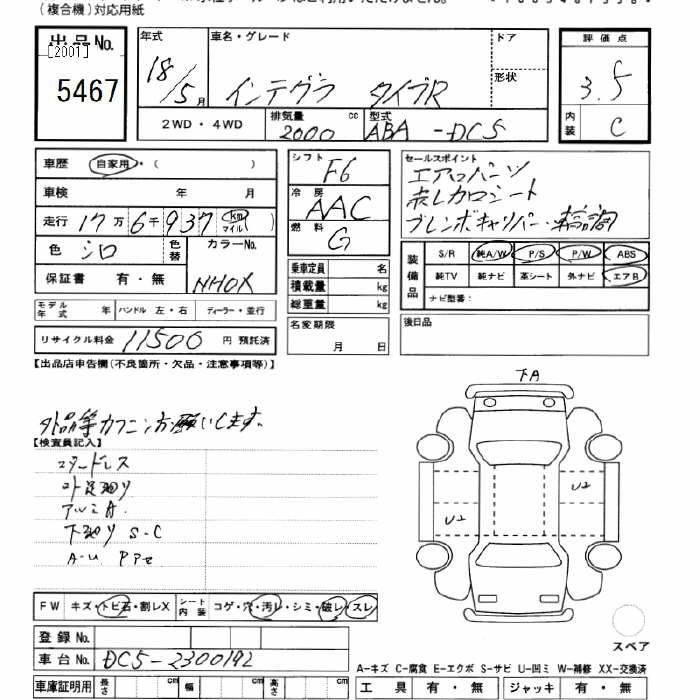 (複合機)対応用紙
出品No.
[2001]
5467
年式
18/5月
車名・グレード
インテグラ タイプR
ドア
形状
評価点
3.5
内装
C
2WD・4WD
排気量 cc
2000
型式
ABA-DC5
車歴 自家用・( )
車検 年 月
走行 17万6千937 km マイル
色 シロ
色替
カラーNo.
NHOX
保証書 有・無
モデル年式 年 ハンドル 左・右 ディーラー・並行
リサイクル料金 11500 円 預託済
シフト
F6
冷房
AAC
燃料
G
乗車定員 名
積載量 kg
総重量 kg
名変期限
月 日
セールスポイント
エアロパーツ
赤レカロシート
ブレンボキャリパー
装備品
S/R 純A/W P/S P/W ABS
純TV 純ナビ 革シート 外ナビ エアB
ナビ型番:
後日品
【出品店申告欄(不良箇所・欠品・注意事項等)】
外品等カクニンお願いします。
【検査員記入】
コアードレス
アルミA.
下廻り S-C
A-U
下A
U2
U2
FW キズ・トビ石・割レX シート内装 コゲ・穴・汚レ・シミ・破レ・スレ
登録No.
車台No. DC5-2300192
車庫証明用 長さ cm 幅 cm 高さ cm
スペア
A-キズ C-腐食 E-エクボ S-サビ U-凹ミ W-補修 XX-交換済
工具 有・無 ジャッキ 有・無